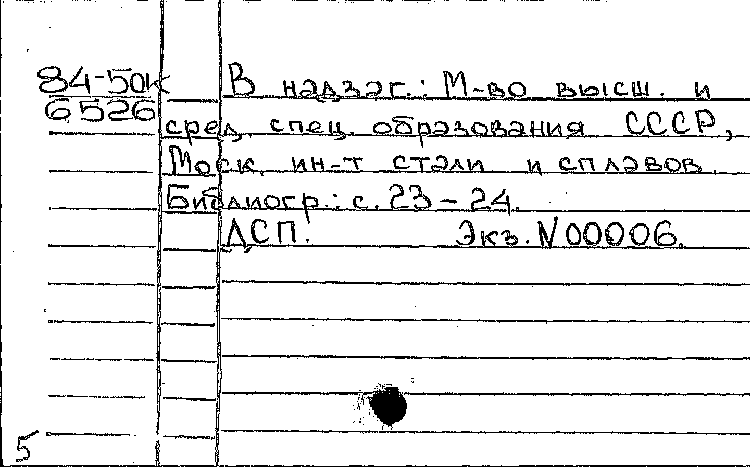 84-50к В надзаг.: М-во высш. и
6526
сред. спец. образования СССР,
Моск. ин-т стали и сплавов.
Библиогр.: с. 23 - 24.
ДСП. Экз. N 00006.
5